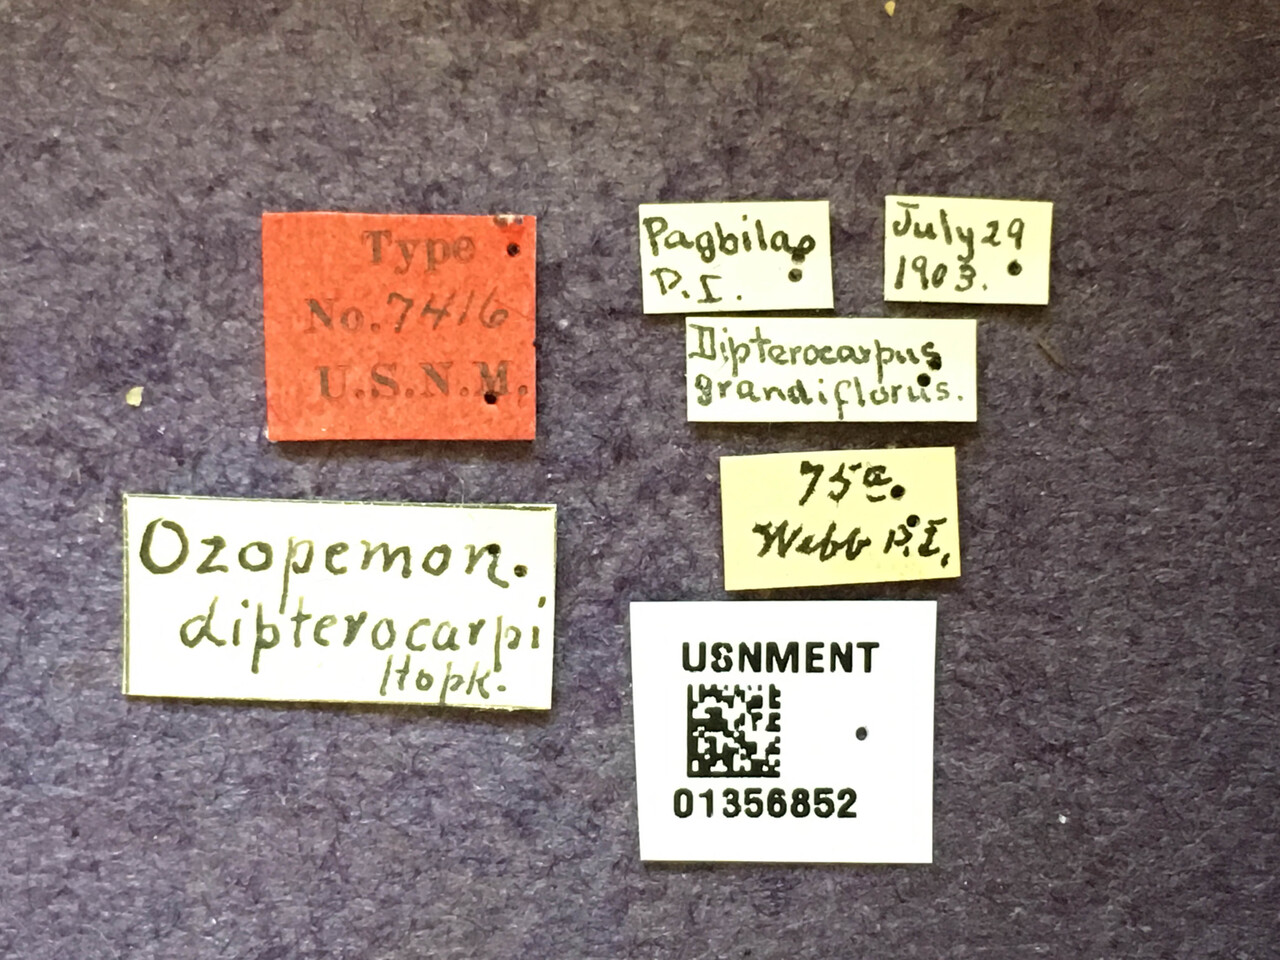 Type
No. 7416
U.S.N.M.
Pagbilao
P.I.
July 29
1903.
Dipterocarpus
grandiflorus.
75a.
Webb P.I.
Ozopemon.
dipterocarpi
Hopk.
USNMENT
01356852